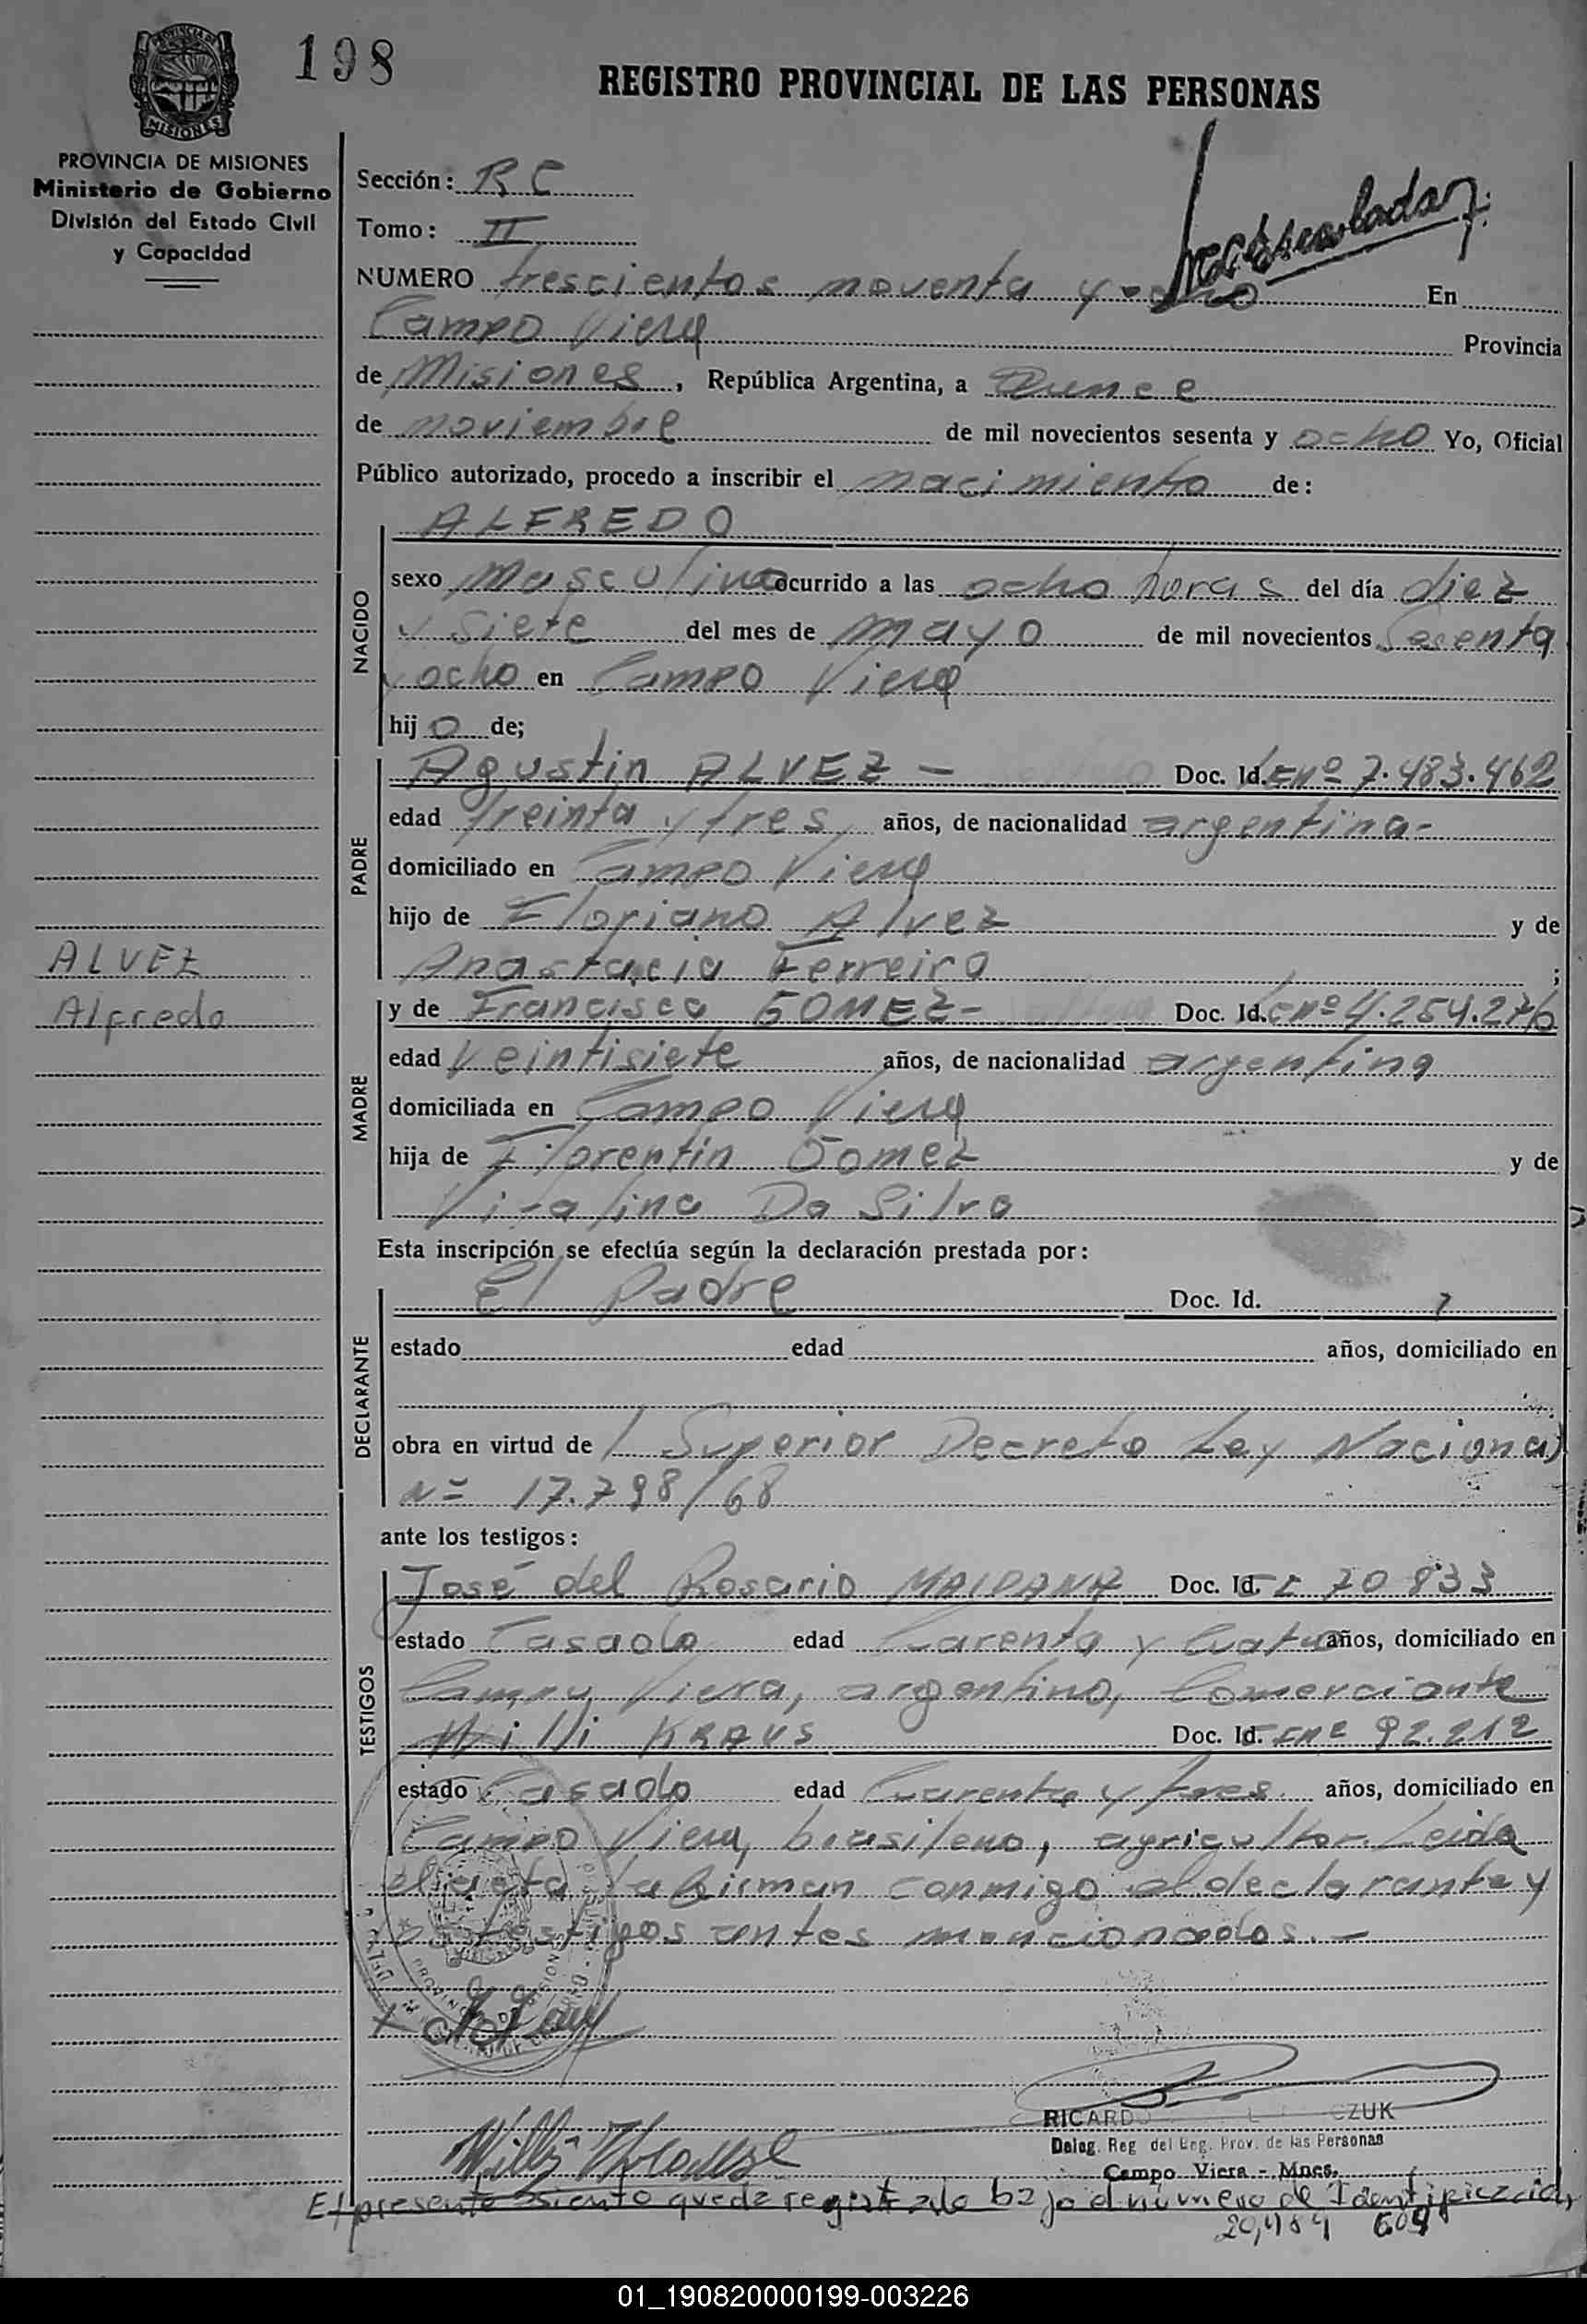 198
REGISTRO PROVINCIAL DE LAS PERSONAS
MISIONES
PROVINCIA DE MISIONES
Ministerio de Gobierno
División del Estado Civil
y Capacidad
Sección: R C
Tomo: II
NUMERO trescientos noventa y ocho En
Campo Viera Provincia
de Misiones, República Argentina, a Quince
de noviembre de mil novecientos sesenta y ocho Yo, Oficial
Público autorizado, procedo a inscribir el nacimiento de:
ALFREDO
NACIDO
sexo Masculino ocurrido a las ocho horas del día diez
y siete del mes de mayo de mil novecientos sesenta
y ocho en Campo Viera
hijo de;
PADRE
Agustin ALVEZ - Doc. Id. E nº 7.483.462
edad treinta y tres años, de nacionalidad argentina-
domiciliado en Campo Viera
hijo de Floriano Alvez y de
Anastacia Ferreira ;
ALVEZ
Alfredo
MADRE
y de Francisca GOMEZ- Doc. Id. C nº 4.254.276
edad Veintisiete años, de nacionalidad argentina
domiciliada en Campo Viera
hija de Florentin Gomez y de
Vitalina Da Silva
Esta inscripción se efectúa según la declaración prestada por:
DECLARANTE
El Padre Doc. Id.
estado edad años, domiciliado en
obra en virtud de l Superior Decreto Ley Nacional
Nº 17.798/68
ante los testigos:
TESTIGOS
José del Rosario MAIDANA Doc. Id. 70833
estado Casado edad Cuarenta y Cuatro años, domiciliado en
Campo Viera, argentino, Comerciante
Willi KRAUS Doc. Id. nº 92.212
estado Casado edad Cuarenta y tres años, domiciliado en
Campo Viera, brasileno, agricultor. Leida
el acta la firman conmigo el declarante y
los testigos antes mencionados.-
RICARDO CZUK
Deleg. Reg del Reg. Prov. de las Personas
Campo Viera - Mnes.
El presente asiento queda registrado bajo el número de Identificación
20,484 604
01_190820000199-003226